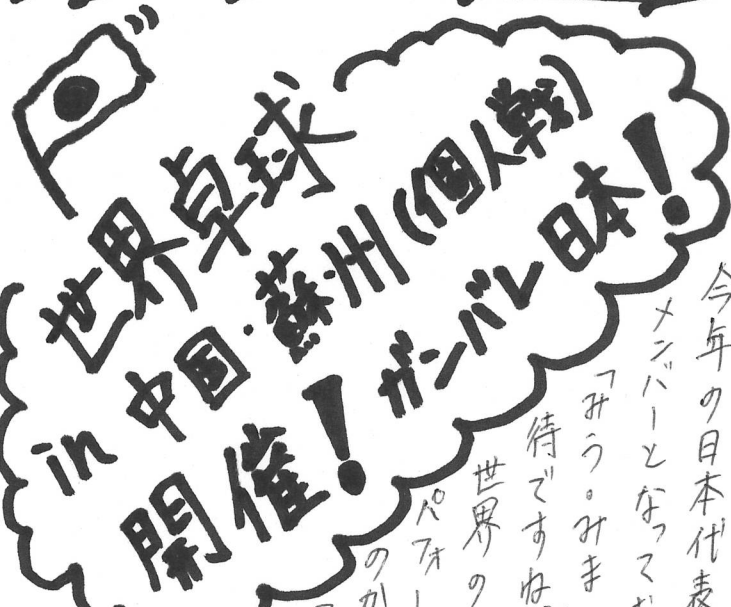 世界卓球
in 中国・蘇州(個人戦)
開催! ガンバレ日本!
今年の日本代表
メンバーとなってお
「みう。みま
待ですね
世界の
パフォー
のか